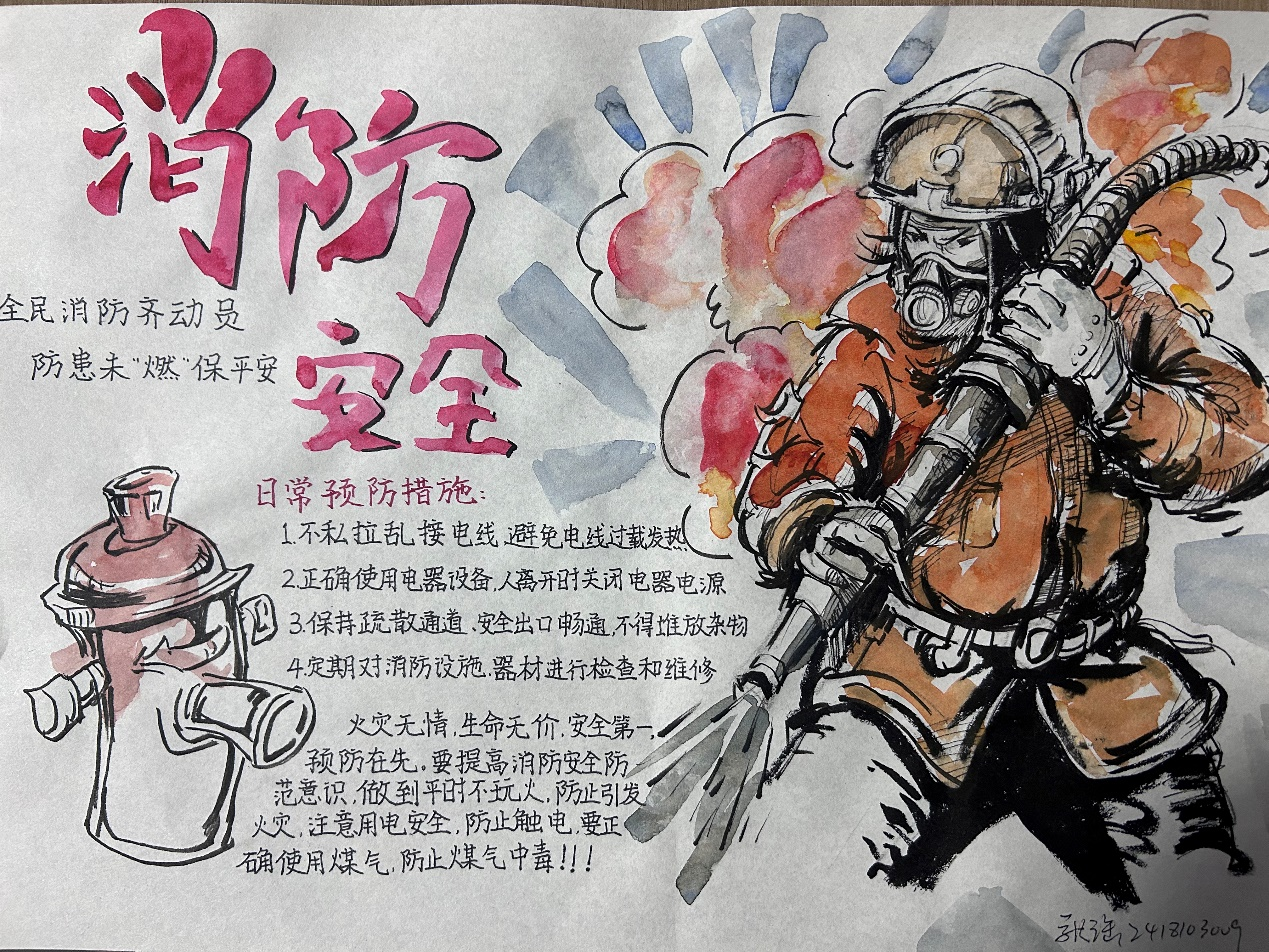 消防
安全
全民消防齐动员
防患未“燃”保平安
日常预防措施:
1.不私拉乱接电线.避免电线过载发热
2.正确使用电器设备,人离开时关闭电器电源
3.保持疏散通道、安全出口畅通,不得堆放杂物
4.定期对消防设施.器材进行检查和维修
火灾无情,生命无价,安全第一,
预防在先.要提高消防安全防
范意识,做到平时不玩火,防止引发
火灾,注意用电安全,防止触电,要正
确使用煤气,防止煤气中毒!!!
2418103009